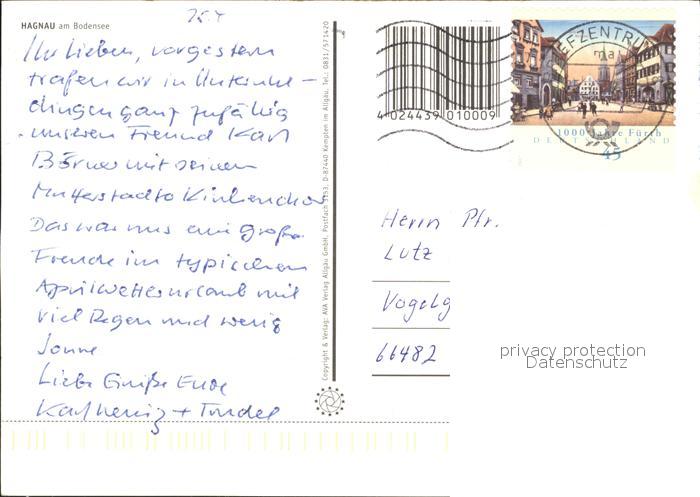 25.4
HAGNAU am Bodensee
Ihr Lieben, vorgestern
trafen wir in Unteruhl-
dingen ganz zufällig
unseren Freund Karl
Börner mit seinem
Mutterstadter Kirchenchor
Das war uns eine große
Freude im typischen
Aprilwetterurlaub mit
viel Regen und wenig
Sonne
Liebe Grüße Eure
Karlheinz + Trudel
Copyright & Verlag: AVA Verlag Allgäu GmbH, Postfach 3153, D-87440 Kempten im Allgäu, Tel.: 0831/571420
4 024439 010009
EFZENTRUM
ma
1000 Jahre Fürth
DEUTSCHLAND
45
Herrn Pfr.
Lutz
Vogelg
66482
privacy protection
Datenschutz